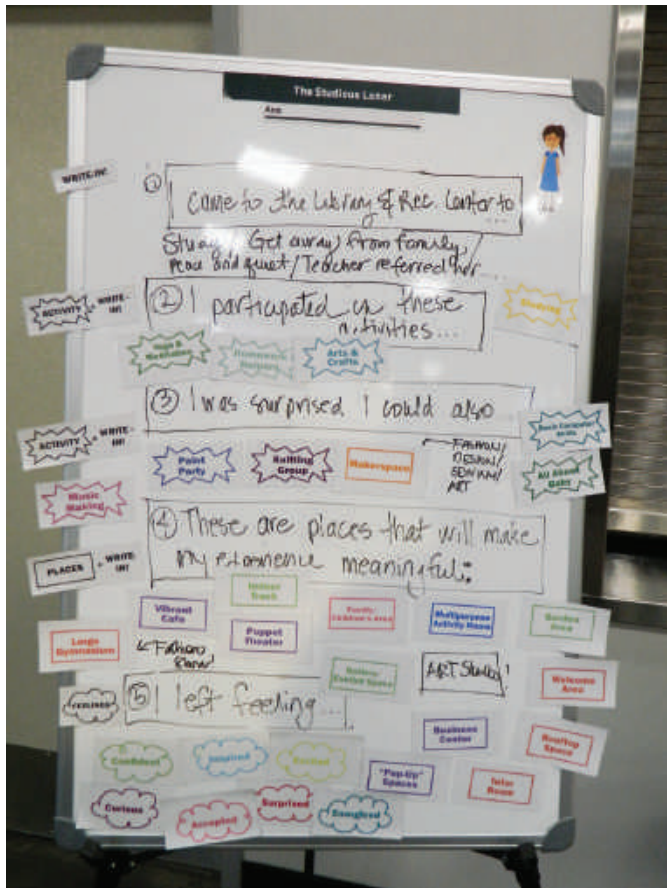 The Studious Loner
Age:
WRITE-IN!
① I came to the Library & Rec. Center to ...
Study / Get away from family /
Peace and quiet / Teacher referred her ...
ACTIVITY + WRITE-IN!
② I participated in these
activities...
Studying
Yoga & Meditation
Homework Helpers
Arts & Crafts
③ I was surprised I could also
ACTIVITY + WRITE-IN!
Paint Party
Knitting Group
Makerspace
FASHION/
DESIGN/
SEWING/
ART
Basic Computer Skills
All About Baby
Music Making
④ These are places that will make
my experience meaningful:
PLACES + WRITE-IN!
Vibrant Cafe
Indoor Track
Family/Children's Area
Multipurpose Activity Room
Garden Area
Large Gymnasium
Fashion
Show!
Puppet Theater
Gallery/Exhibit Space
ART Studio!
Welcome Area
FEELINGS
⑤ I left feeling...
Business Center
Rooftop Space
Confident
Inspired
Excited
"Pop-Up" Spaces
Tutor Room
Curious
Accepted
Surprised
Energized